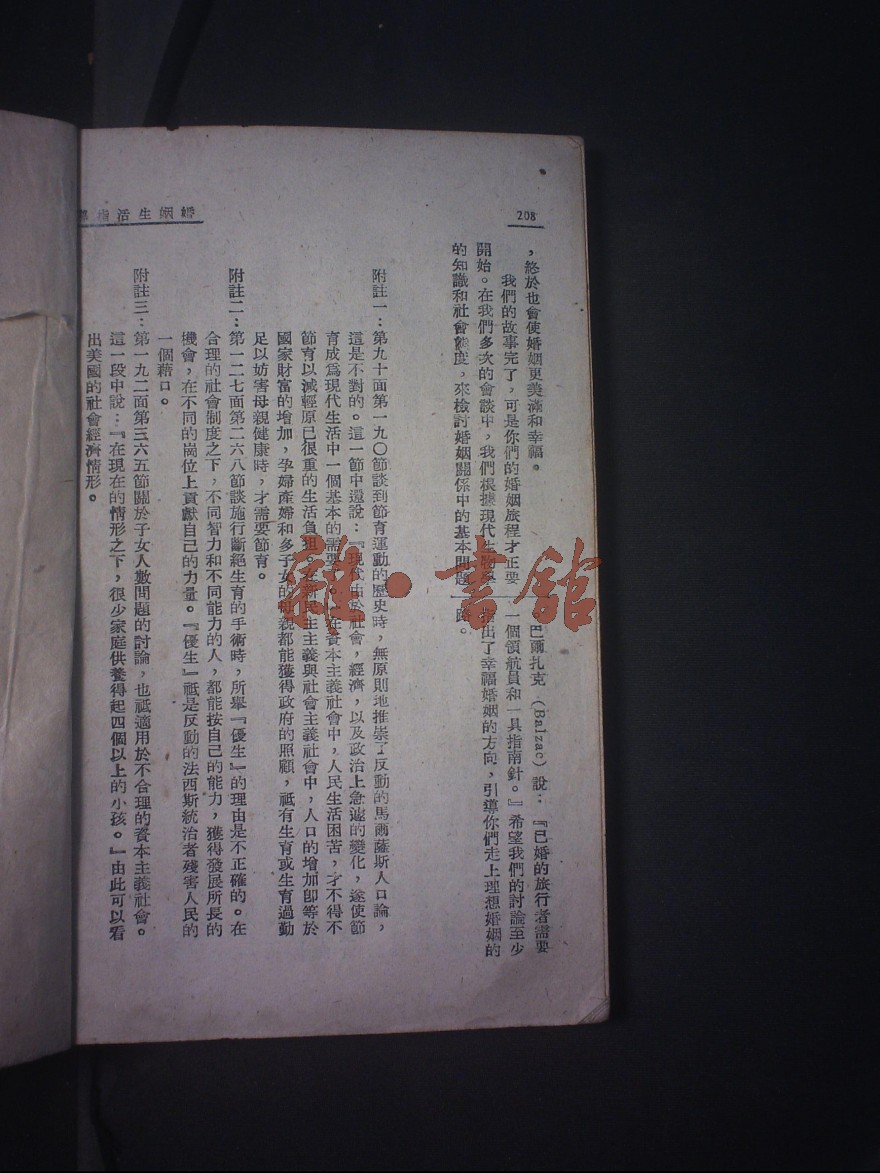 208
婚姻生活指
，終於也會使婚姻更美滿和幸福。
我們的故事完了，可是你們的婚姻旅程才正要
開始。在我們多次的會談中，我們根據現代生學
的知識和社會態度，來檢討婚姻關係中的基本問題
巴爾扎克（Balzac）說：『已婚的旅行者需要
一個領航員和一具指南針。』希望我們的討論至少
指出了幸福婚姻的方向，引導你們走上理想婚姻的
路。
附註一：第九十面第一九〇節談到節育運動的歷史時，無原則地推崇了反動的馬爾薩斯人口論，
這是不對的。這一節中還說：『現代由於社會，經濟，以及政治上急遽的變化，遂使節
育成爲現代生活中一個基本的需要。』在資本主義社會中，人民生活困苦，才不得不
節育以減輕原已很重的生活負担。在新民主主義與社會主義社會中，人口的增加卽等於
國家財富的增加，孕婦產婦和多子女的母親都能獲得政府的照顧，祗有生育或生育過勤
足以妨害母親健康時，才需要節育。
附註二：第一二七面第二六八節談施行斷絕生育的手術時，所舉『優生』的理由是不正確的。在
合理的社會制度之下，不同智力和不同能力的人，都能按自己的能力，獲得發展所長的
機會，在不同的崗位上貢獻自己的力量。『優生』祗是反動的法西斯統治者殘害人民的
一個藉口。
附註三：第一九二面第三六五節關於子女人數問題的討論，也祗適用於不合理的資本主義社會。
這一段中說：『在現在的情形之下，很少家庭供養得起四個以上的小孩。』由此可以看
出美國的社會經濟情形。
雜·書館